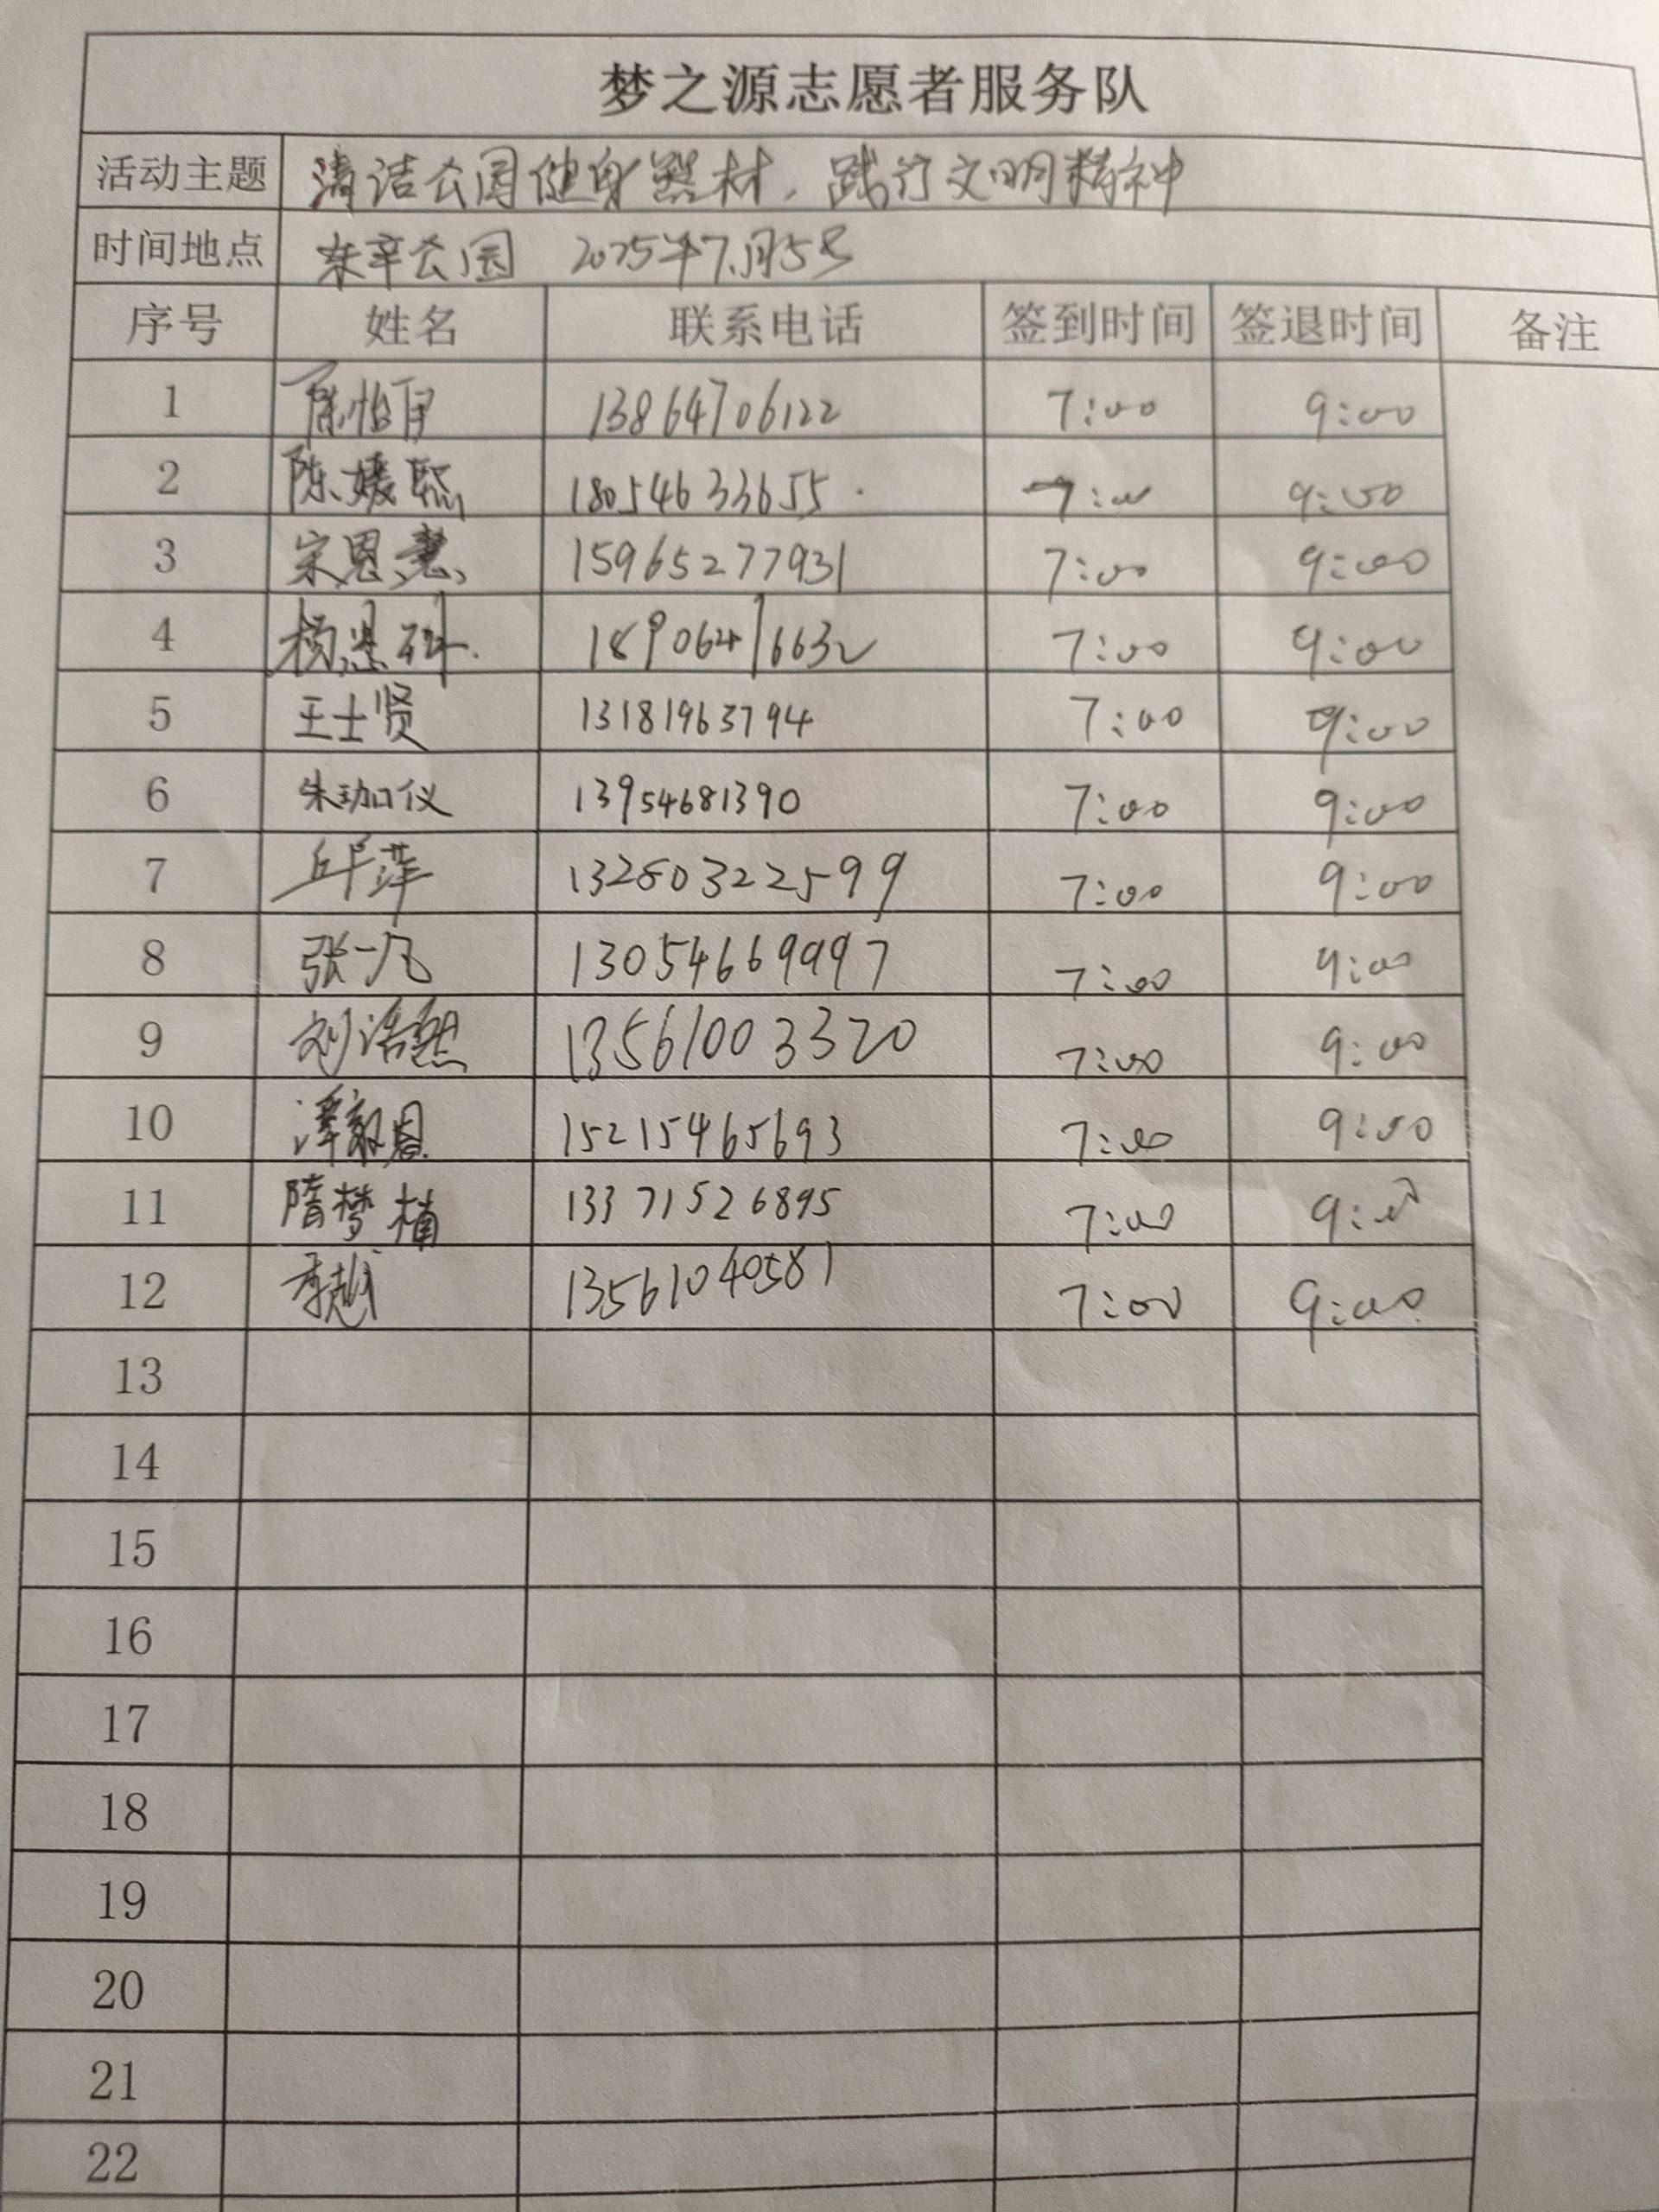 梦之源志愿者服务队
活动主题 清洁公园健身器材，践行文明精神
时间地点 东辛公园 2025年7月5号
序号 姓名 联系电话 签到时间 签退时间 备注
1 陈怡 13864706122 7:00 9:00
2 陈媛熙 18054633655 7:00 9:00
3 宋恩慧 15965277931 7:00 9:00
4 杨 18906471663 7:00 9:00
5 王士贤 13181963794 7:00 9:00
6 朱珈仪 13954681390 7:00 9:00
7 邱萍 13280322599 7:00 9:00
8 张一凡 13054669997 7:00 9:00
9 刘浩然 13561003320 7:00 9:00
10 15215465693 7:00 9:00
11 隋梦楠 13371526895 7:00 9:00
12 李越 13561040581 7:00 9:00
13
14
15
16
17
18
19
20
21
22